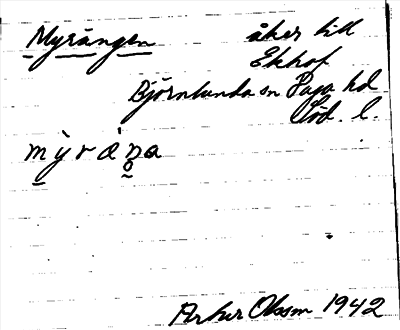 Myrängen åker till
Ekhof
Björnlunda sn Daga hd
Söd. l.
mỳrάṇa
Artur Olsson 1942